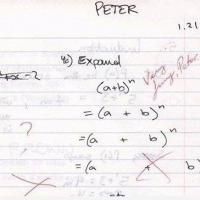 PETER
1.21
4c) Expand
(a+b)^n
Very funny, Peter.
= (a + b)^n
?
= (a + b)^n
= (a + b)